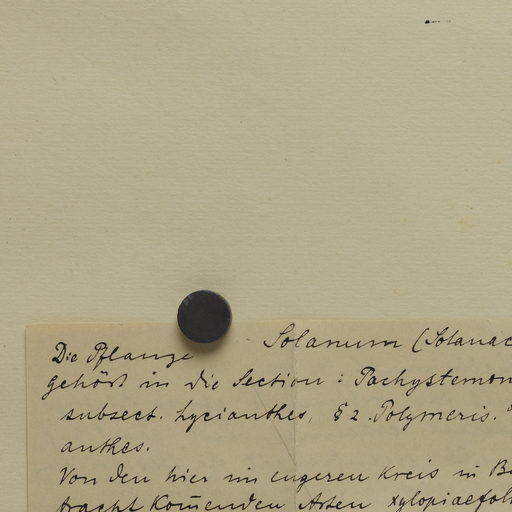 Solanum (Solanac
Die Pflanze
gehört in die Section: Pachystemon
subsect. Lycianthes, § 2. Polymeris.
anthes.
Von den hier im engeren Kreis in Be
tracht kom̅enden Arten xylopiaefol